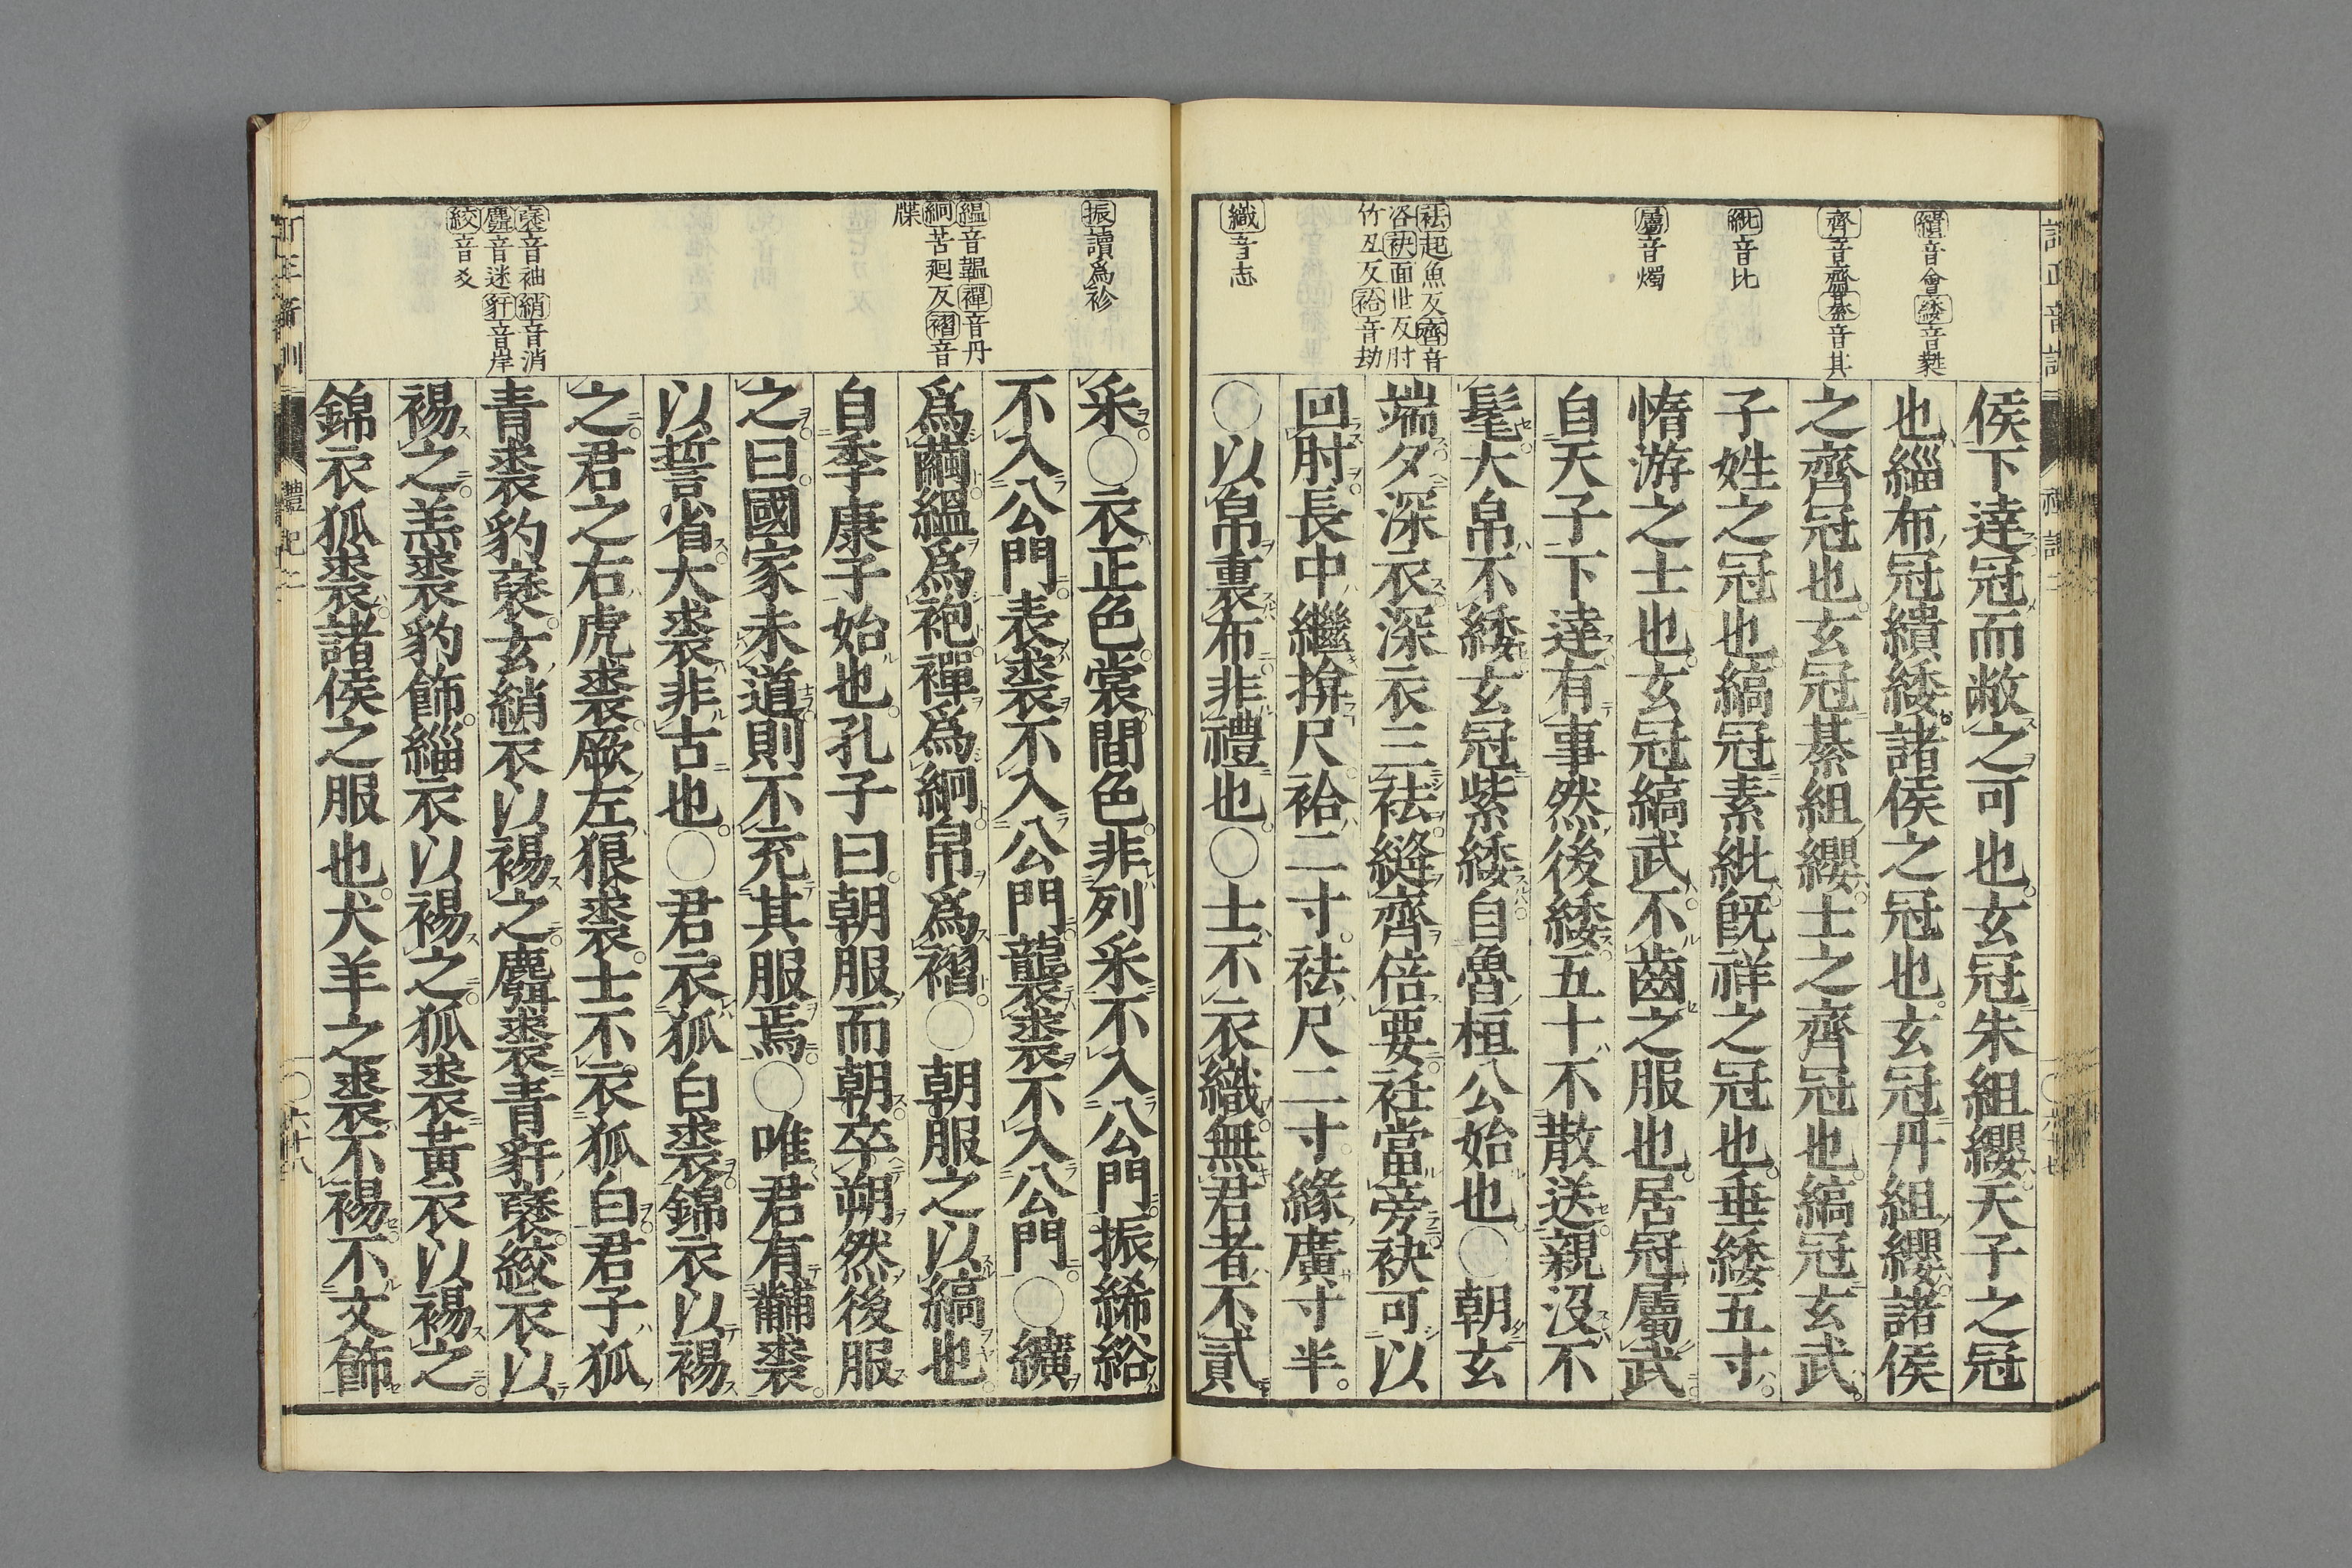 繢音會緌音蕤
齊音齋綦音其
紕音比
屬音燭
袪起魚反齊音
咨袂面世反肘
竹丑反袷音劫
織音志
侯下達冠而敝之可也玄冠朱組纓天子之冠
也緇布冠繢緌諸侯之冠也玄冠丹組纓諸侯
之齊冠也玄冠綦組纓士之齊冠也縞冠玄武
子姓之冠也縞冠素紕旣祥之冠也垂緌五寸
惰游之士也玄冠縞武不齒之服也居冠屬武
自天子下達有事然後緌五十不散送親沒不
髦大帛不緌玄冠紫緌自魯桓公始也○朝玄
端夕深衣深衣三袪縫齊倍要衽當旁袂可以
回肘長中繼揜尺袷二寸袪尺二寸緣廣寸半
○以帛裏布非禮也○士不衣織無君者不貳
振讀爲袗
縕音韞襌音丹
絅苦迥反褶音
牒
褎音袖綃音消
麛音迷豻音岸
絞音爻
采○衣正色裳間色非列采不入公門振絺綌
不入公門表裘不入公門襲裘不入公門○纊
爲繭縕爲袍襌爲絅帛爲褶○朝服之以縞也
自季康子始也孔子曰朝服而朝卒朔然後服
之曰國家未道則不充其服焉○唯君有黼裘
以誓省大裘非古也○君衣狐白裘錦衣以裼
之君之右虎裘厥左狼裘士不衣狐白君子狐
青裘豹褎玄綃衣以裼之麛裘青豻褎絞衣以
裼之羔裘豹飾緇衣以裼之狐裘黃衣以裼之
錦衣狐裘諸侯之服也犬羊之裘不裼不文飾
訂正音訓
禮記二
○六十八